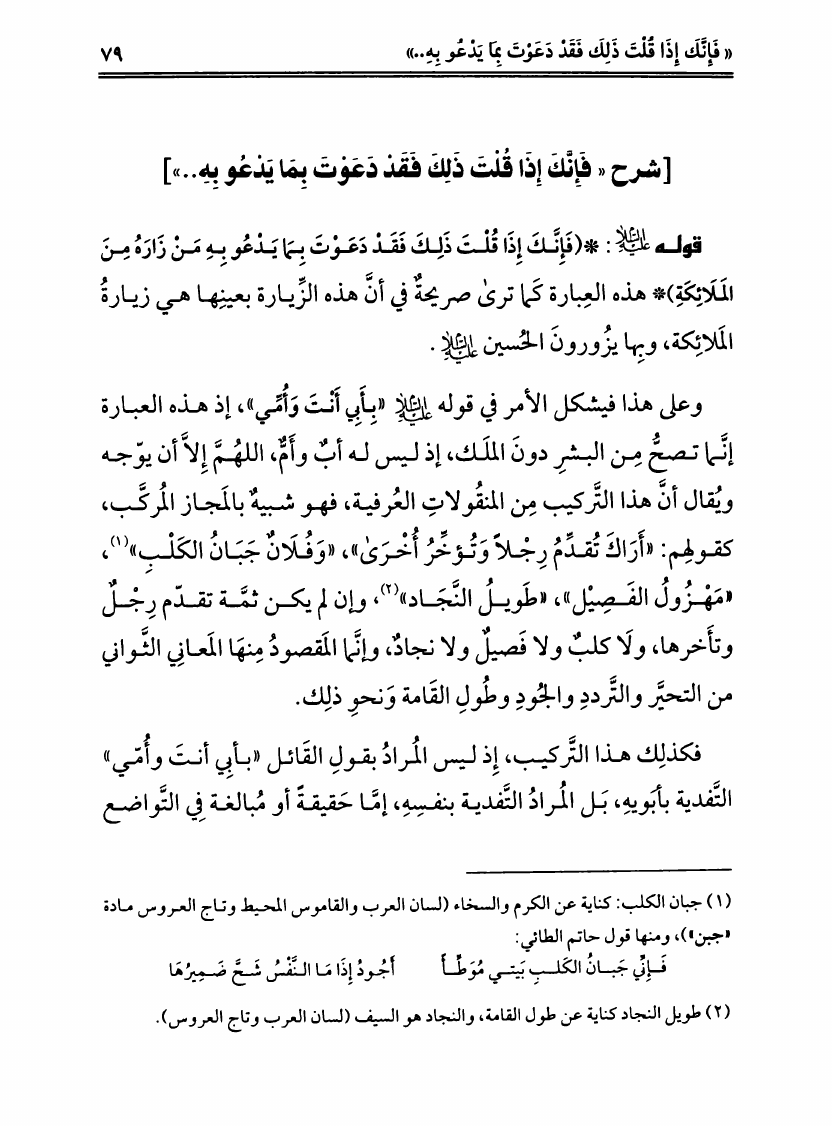 « فَإِنَّكَ إِذَا قُلْتَ ذَلِكَ فَقَدْ دَعَوْتَ بِمَا يَدْعُو بِهِ..» ٧٩
[شرح « فَإِنَّكَ إِذَا قُلْتَ ذَلِكَ فَقَدْ دَعَوْتَ بِمَا يَدْعُو بِهِ..»]
قوله عليه السلام: *(فَإِنَّكَ إِذَا قُلْتَ ذَلِكَ فَقَدْ دَعَوْتَ بِمَا يَدْعُو بِهِ مَنْ زَارَهُ مِنَ
المَلَائِكَةِ)* هذه العِبارة كَما ترىٰ صريحةٌ في أنَّ هذه الزِّيارة بعينِها هي زيارةُ
المَلَائِكة، وبِها يزُورونَ الحُسين عليه السلام.
وعلى هذا فيشكل الأمر في قوله عليه السلام «بِأَبِي أَنْتَ وَأُمِّي»، إذ هذه العبارة
إنَّما تصحُّ مِن البشرِ دونَ الملَك، إذ ليس له أبٌ وأمٌّ، اللهُمَّ إلاَّ أن يوّجه
ويُقال أنَّ هذا التَّركيب مِن المنقُولاتِ العُرفية، فهو شبيهٌ بالمَجاز المُركَّب،
كقولِهم: «أَرَاكَ تُقدِّمُ رِجْلاً وَتُؤخِّرُ أُخْرَىٰ»، «وَفُلَانٌ جَبَانُ الكَلْبِ»(١)،
«مَهْزُولُ الفَصِيْلِ»، «طَويلُ النَّجَاد»(٢)، وإن لم يكن ثمَّة تقدّم رِجْلٌ
وتأخرها، ولَا كلبٌ ولا فَصيلٌ ولا نجادٌ، وإنَّما المَقصودُ مِنهَا المَعاني الثَّواني
من التحيَّر والتَّرددِ والجُودِ وطُولِ القَامة وَنحوِ ذلِك.
فكذلِك هذا التَّركيب، إِذ ليس المُرادُ بقولِ القَائل «بأبي أنتَ وأُمّي»
التَّفدية بأبَويهِ، بَل المُرادُ التَّفدية بنفسِهِ، إمَّا حَقيقةً أو مُبالغة فِي التَّواضع
(١) جبان الكلب: كناية عن الكرم والسخاء (لسان العرب والقاموس المحيط وتاج العروس مادة
«جبن»)، ومنها قول حاتم الطائي:
فَإِنِّي جَبَانُ الكَلبِ بَيتي مُوَطَّأً أَجُودُ إِذَا مَا النَّفْسُ شَحَّ ضَمِيرُهَا
(٢) طويل النجاد كناية عن طول القامة، والنجاد هو السيف (لسان العرب وتاج العروس).